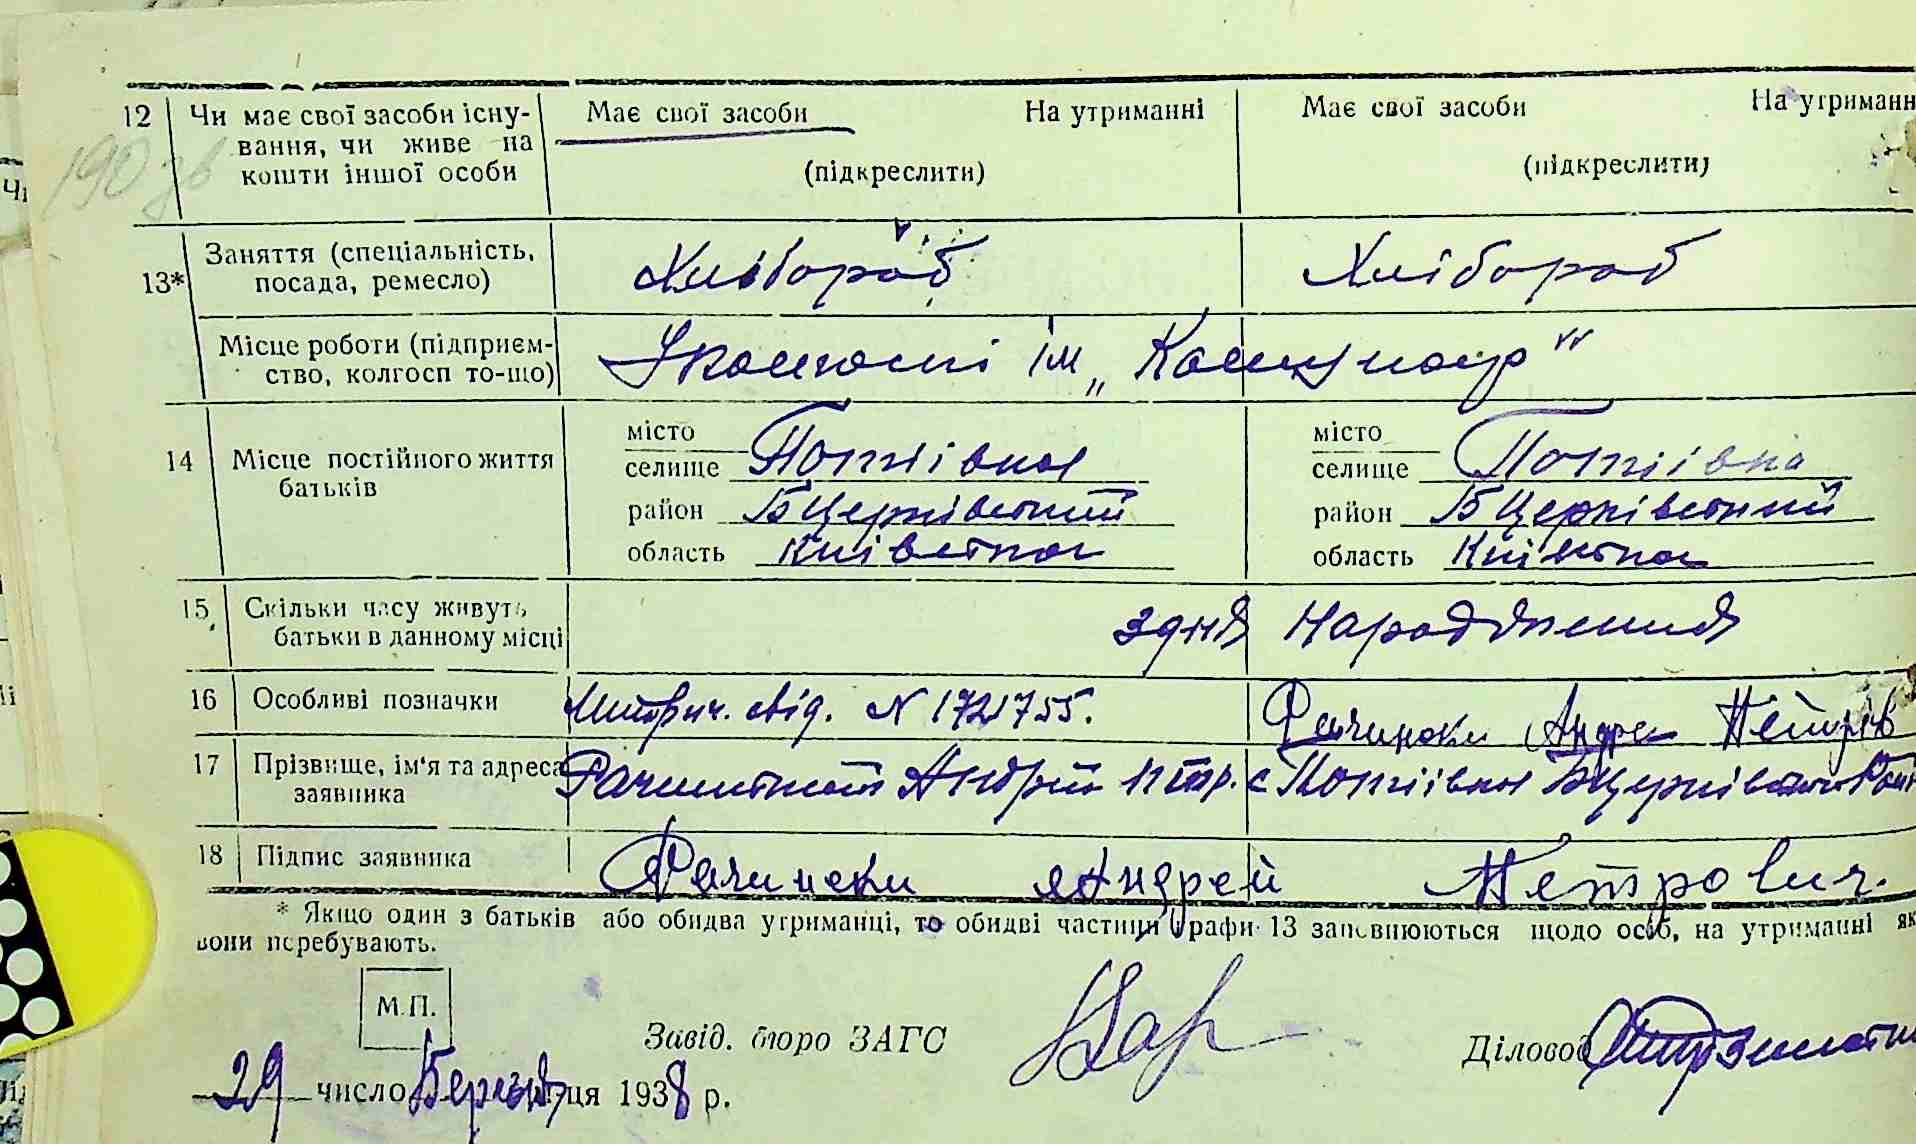 12 Чи має свої засоби існу- Має свої засоби На утриманні Має свої засоби На утриманн
190 зв
вання, чи живе на
кошти іншої особи (підкреслити) (підкреслити)
13* Заняття (спеціальність, Хлібороб Хлібороб
посада, ремесло)
Місце роботи (підприєм- У колгоспі ім „Комунар"
ство, колгосп то-що)
14 Місце постійного життя місто місто
батьків селище Потіївка селище Потіївка
район БЦерківський район БЦерківський
область Київська область Київська
15 Скільки часу живуть з дня народження
батьки в данному місці
16 Особливі позначки Метрич. свід. N 1721755. Рачински Андре Петрів
17 Прізвище, ім'я та адреса Рачинський Андрій Петр. с Потіївка БЦерківського
заявника
18 Підпис заявника Рачински Андрей Петрович.
* Якщо один з батьків або обидва утриманці, то обидві частини графи 13 заповнюються щодо осіб, на утриманні як
вони перебувають.
М.П.
Завід. бюро ЗАГС Діловод
29 число Березня ця 1938 р.